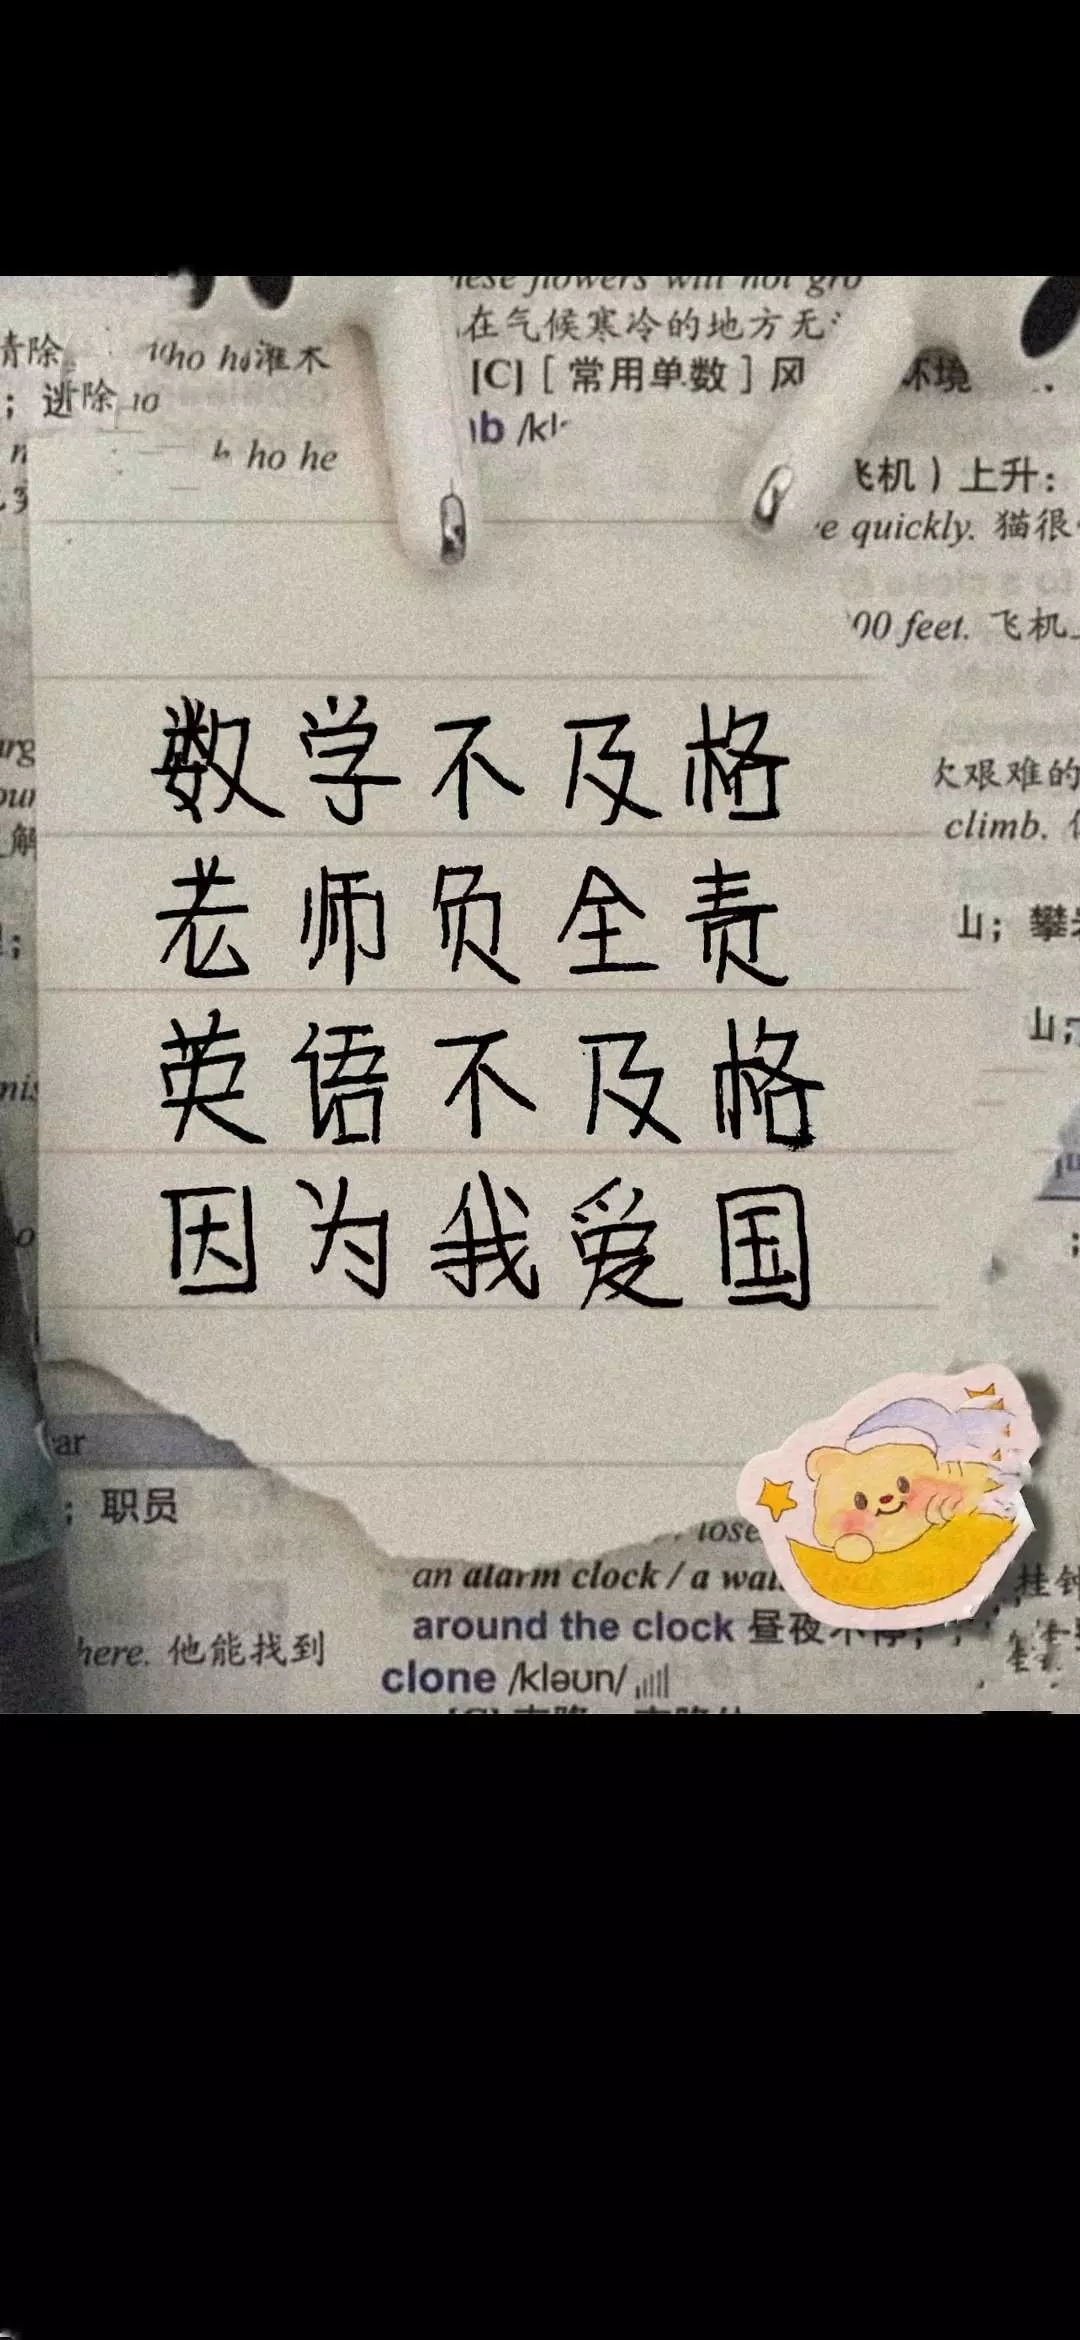 these flowers will not gro
在气候寒冷的地方无
[C] [常用单数] 风
环境
清除
灌木
; 逃除
ho he
飞机) 上升:
e quickly. 猫很
00 feet. 飞机
数学不及格
艰难的
climb.
老师负全责
山; 攀
英语不及格
山;
因为我爱国
ar
; 职员
an alarm clock / a wal
around the clock 昼夜不停;
挂钟
here. 他能找到
clone /kləun/